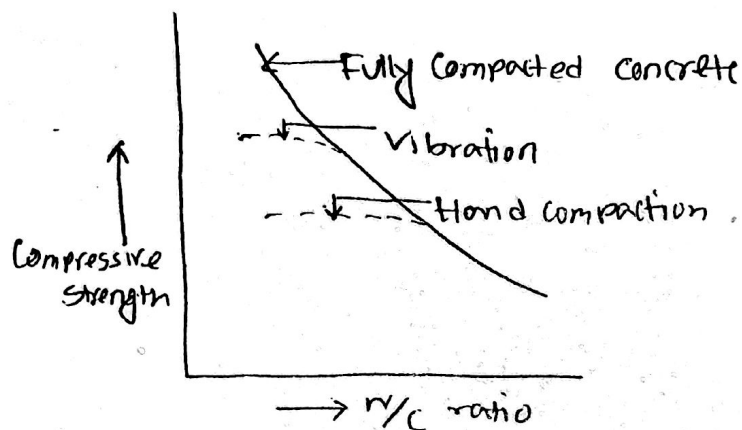 Fully Compacted concrete
Vibration
Hand compaction
Compressive
strength
W/C ratio